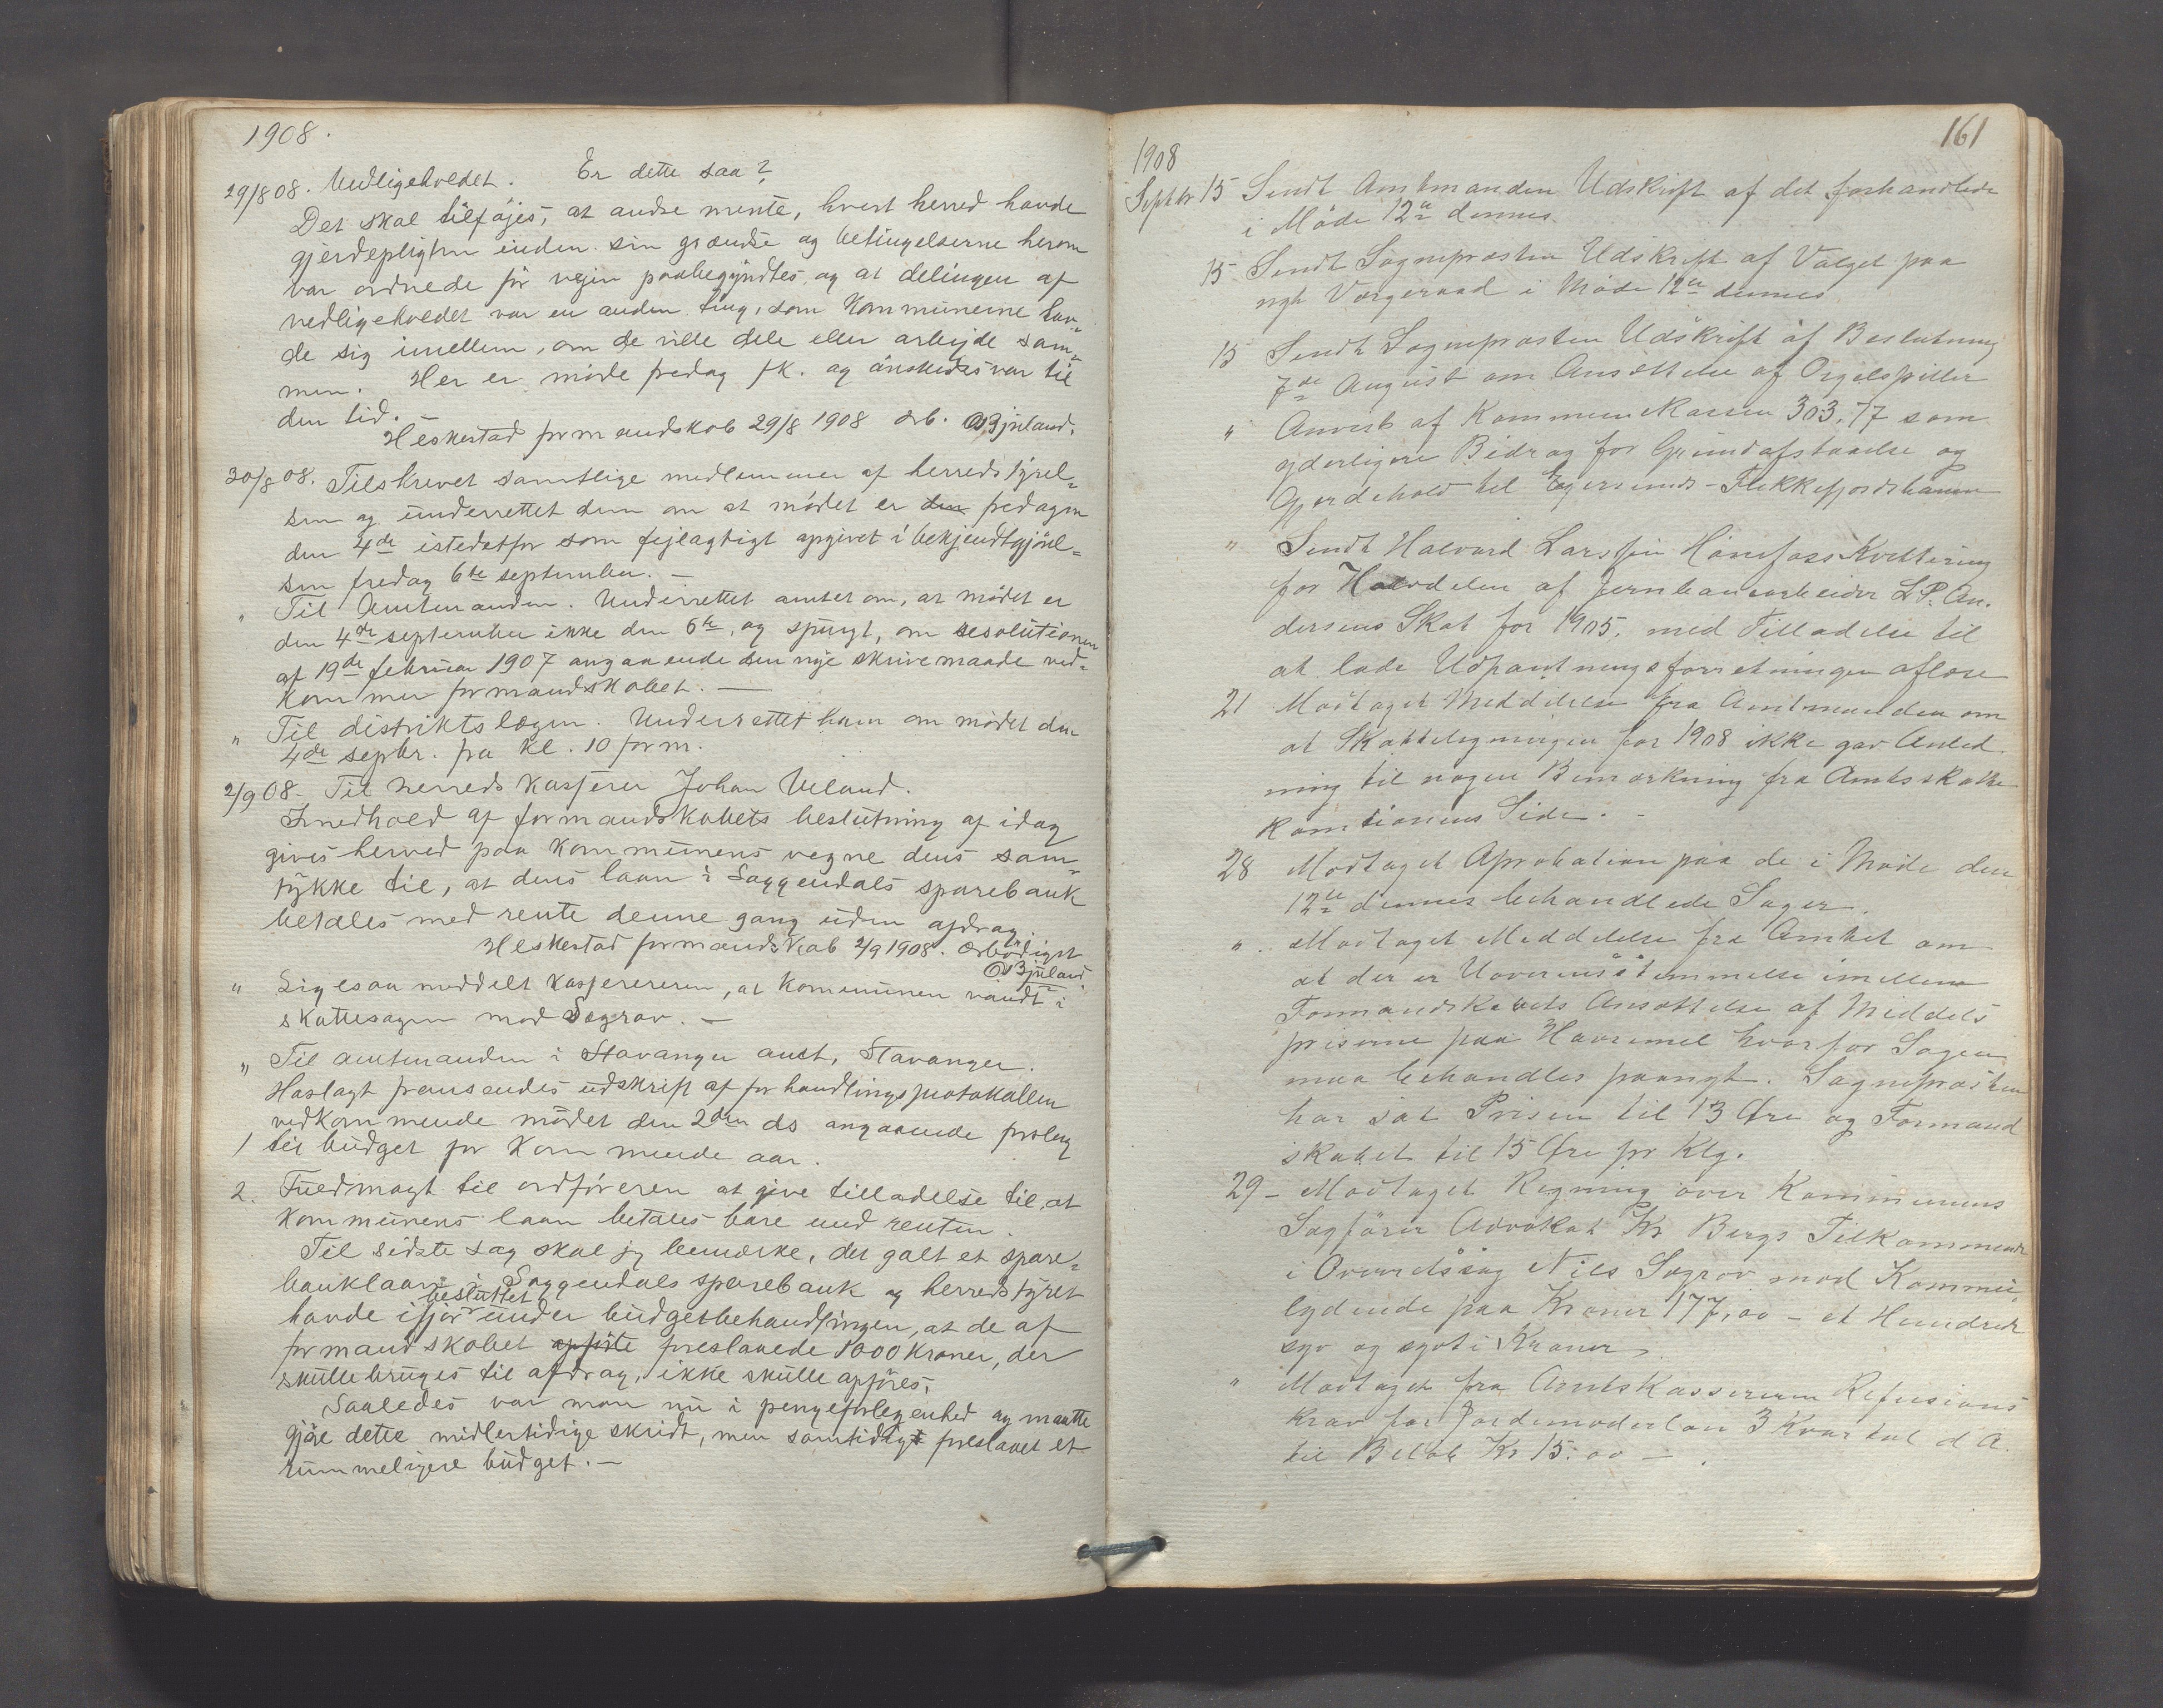 1908.
29/8 08. Vedligeholdet. Er dette saa?
Det skal tilføjes, at andre mente, hvert herred havde
gjerdepligten inden sin grændse og betingelserne herom
var ordnede før vejen paabegyndtes, og at delingen af
vedligeholdet var en anden ting, som kommunerne hav-
de sig imellem, om de vilde dele eller arbejde sam-
men. Her er møde fredag fk. og ønskedes svar til
den tid. —
Heskestad formandskab 29/8 1908 ærb. OBjuland.
30/8 08. Tilskrevet samtlige medlemmer af herredstyrel-
sen og underrettet dem om at mødet er den fredagen
den 4de istedetfor som fejlagtigt opgivet i bekjendtgjørel-
sen fredag 6te september. —
" Til Amtmanden. Underrettet amtet om, at mødet er
den 4de september ikke den 6te, og spurgt, om resolutionen
af 19de februar 1907 angaaende den nye skrivemaade ved-
kommer formandskabet. —
" Til distriktslægen. Underrettet ham om mødet den
4de septbr. fra kl. 10 form.
2/9 08. Til herredskasserer Johan Veland.
I henhold af formandskabets beslutning af idag
gives herved paa kommunens vegne dens sam-
tykke til, at dens laan i Soggendals sparebank
betales med rente denne gang uden afdrag.
Heskestad formandskab 2/9 1908. Ærbødigst
OBjuland.
" Ligesaa meddelt kassereren, at kommunen vandt i
skattesagen mod Søgrov. —
" Til amtmanden i Stavanger amt, Stavanger.
Hoslagt fremsendes udskrift af forhandlingsprotokollen
vedkommende mødet den 2den ds angaaende forslag
1 til budget for kommende aar.
2. Fuldmagt til ordføreren at give tilladelse til, at
kommunens laan betales bare med renten.
Til sidste sag skal jeg bemærke, det galt et spare-
banklaan i Soggendals sparebank og herredstyret
besluttet
havde ifjor under budgetbehandlingen, at de af
formandskabet opførte foreslaaede 1000 kroner, der
skulle bruges til afdrag, ikke skulle opføres.
Saaledes var man nu i pengeforlegenhed og maatte
gjøre dette midlertidige skridt, men samtidigt foreslaaet et
rummeligere budget. —
161
1908
Septbr 15 Sendt Amtmanden Udskrift af det forhandlede
i Møde 12te dennes
15 Sendt Sognepræsten Udskrift af Valget paa
nyt Værgeraad i Møde 12te dennes
15 Sendt Sognepræsten Udskrift af Beslutning
7de August om Ansættelse af Orgelspiller
" Anvist af Kommunekassen 303,77 som
yderligere Bidrag for Grundafstaaelse og
Gjerdehold til Egersunds-Flekkefjordsbanen
" Sendt Halvard Larssen Hønefoss Kvittering
for Halvdelen af Jernbanearbeider L.P. An-
dersens Skat for 1905, med Tilladelse til
at lade Udpantningsforretningen aflæse
21 Modtaget Meddelelse fra Amtmanden om
at Skatteligningen for 1908 ikke gav Anled-
ning til nogen Bemærkning fra Amtsskatte
komisionens Side. -
28 Modtaget Aprobation paa de i Møde den
12te dennes behandlede Sager.
" Modtaget Meddelelse fra Amtet om
at der er Uoverensstemmelse imellem
Formandskabets Ansættelse af Middels
priserne paa Havremel hvorfor Sagen
maa behandles paanyt. Sognepræsten
har sat Prisen til 13 Øre og Formand
skabet til 15 Øre pr Klg.
29 - Modtaget Regning over Kommunens
Sagfører Advokat Kr Bergs Tilkommende
i Overretssag Nils Søgrov mod Kommu-
lydende paa Kroner 177,00 - et Hundrede
syv og sytti Kroner
" Modtaget fra Amtskassereren Refusions
krav for Jordemoderløn 3 Kvartal d A.
til Beløb Kr 15.00 —